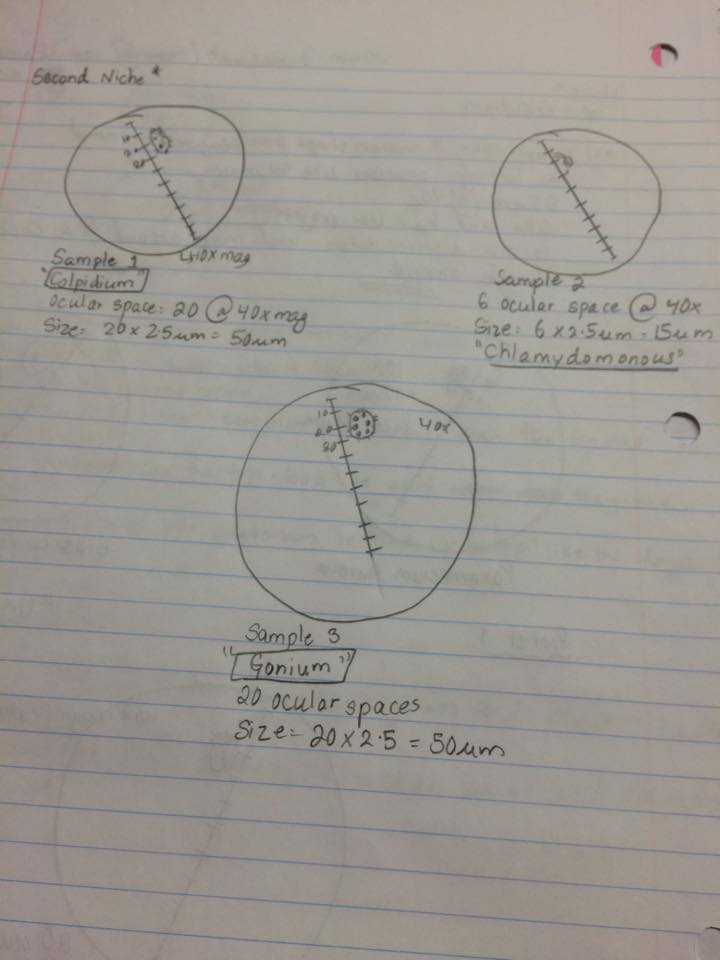 Second Niche *
Sample 1
40x mag
"Colpidium"
Ocular space: 20 @ 40x mag
Size: 20 x 2.5um = 50um
Sample 2
6 ocular space @ 40x
Size: 6 x 2.5um = 15um
"Chlamydomonous"
10
20
30
40x
Sample 3
"Gonium"
20 ocular spaces
Size = 20 x 2.5 = 50um